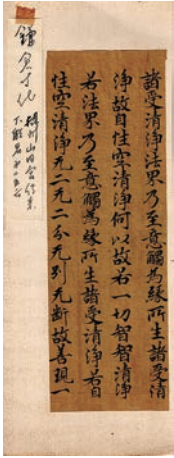 諸受清淨法界乃至意觸為緣所生諸受清
淨故自性空清淨何以故若一切智智清淨
若法界乃至意觸為緣所生諸受清淨若自
性空清淨无二无二分无別无断故善現一